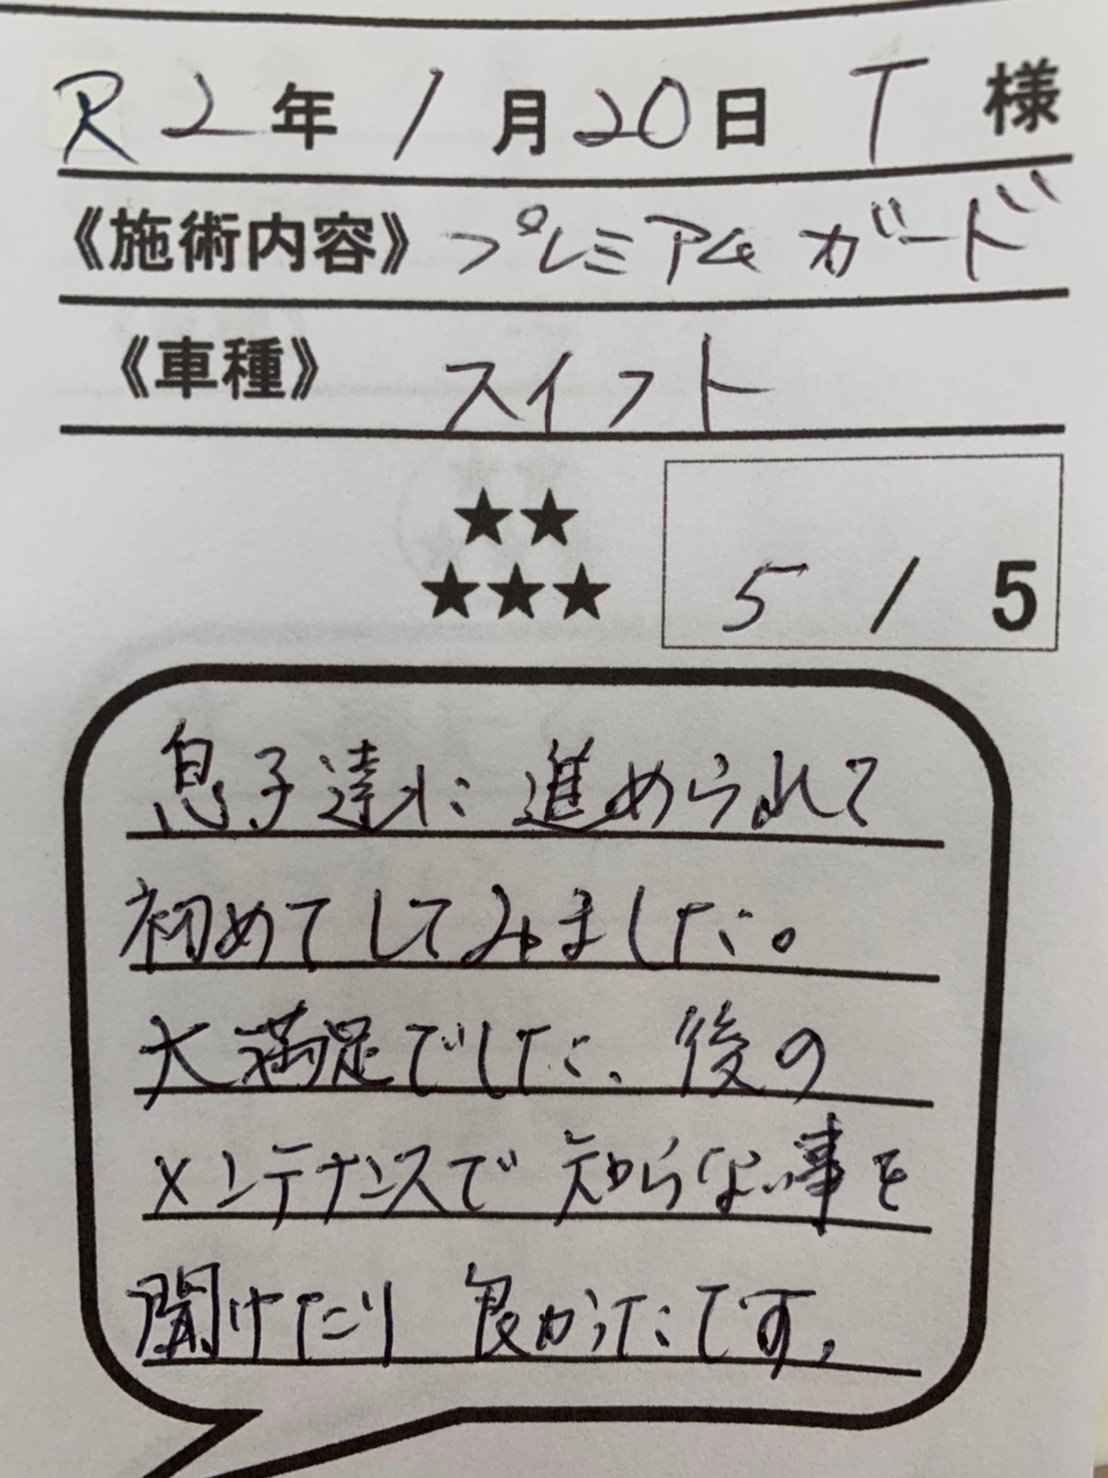 R2年1月20日 T 様
《施術内容》プレミアム ガード
《車種》 スイフト
★★
★★★
5 / 5
息子達に進められて
初めてしてみました。
大満足でした、後の
メンテナンスで知らない事を
聞けたり良かったです。